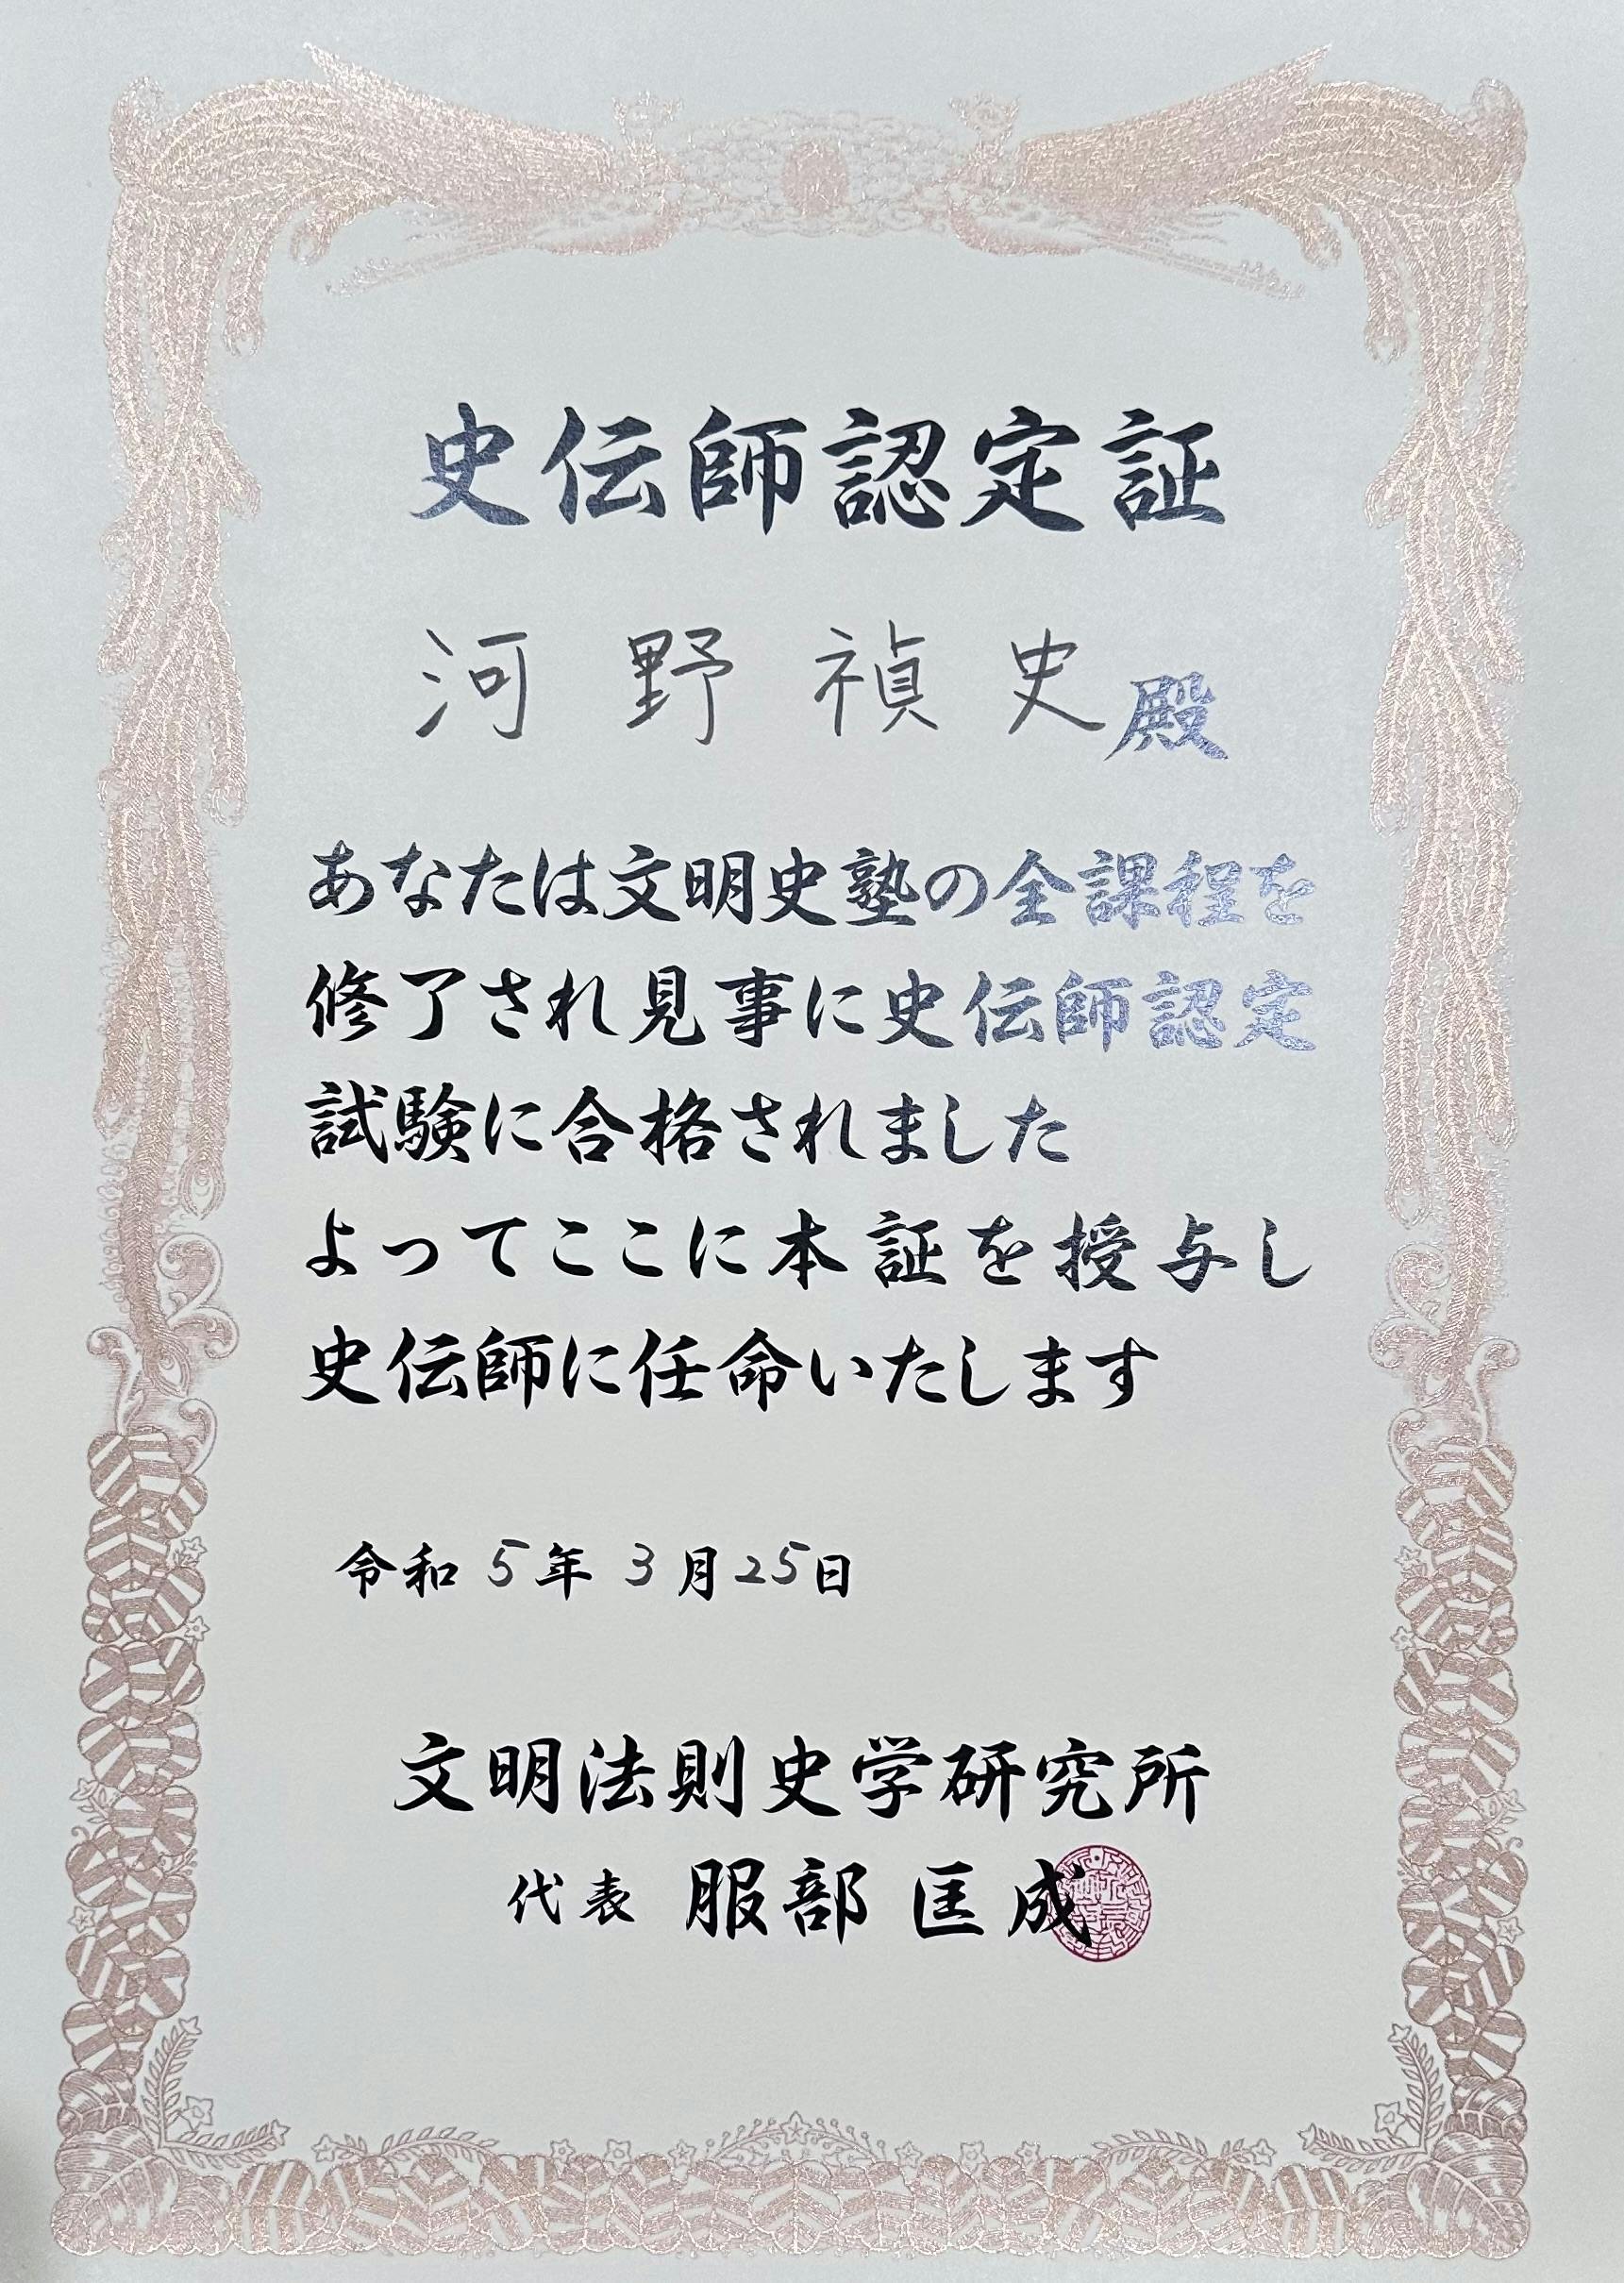 史伝師認定証
河野禎史殿
あなたは文明史塾の全課程を
修了され見事に史伝師認定
試験に合格されました
よってここに本証を授与し
史伝師に任命いたします
令和 5年 3月25日
文明法則史学研究所
代表 服部 匡成